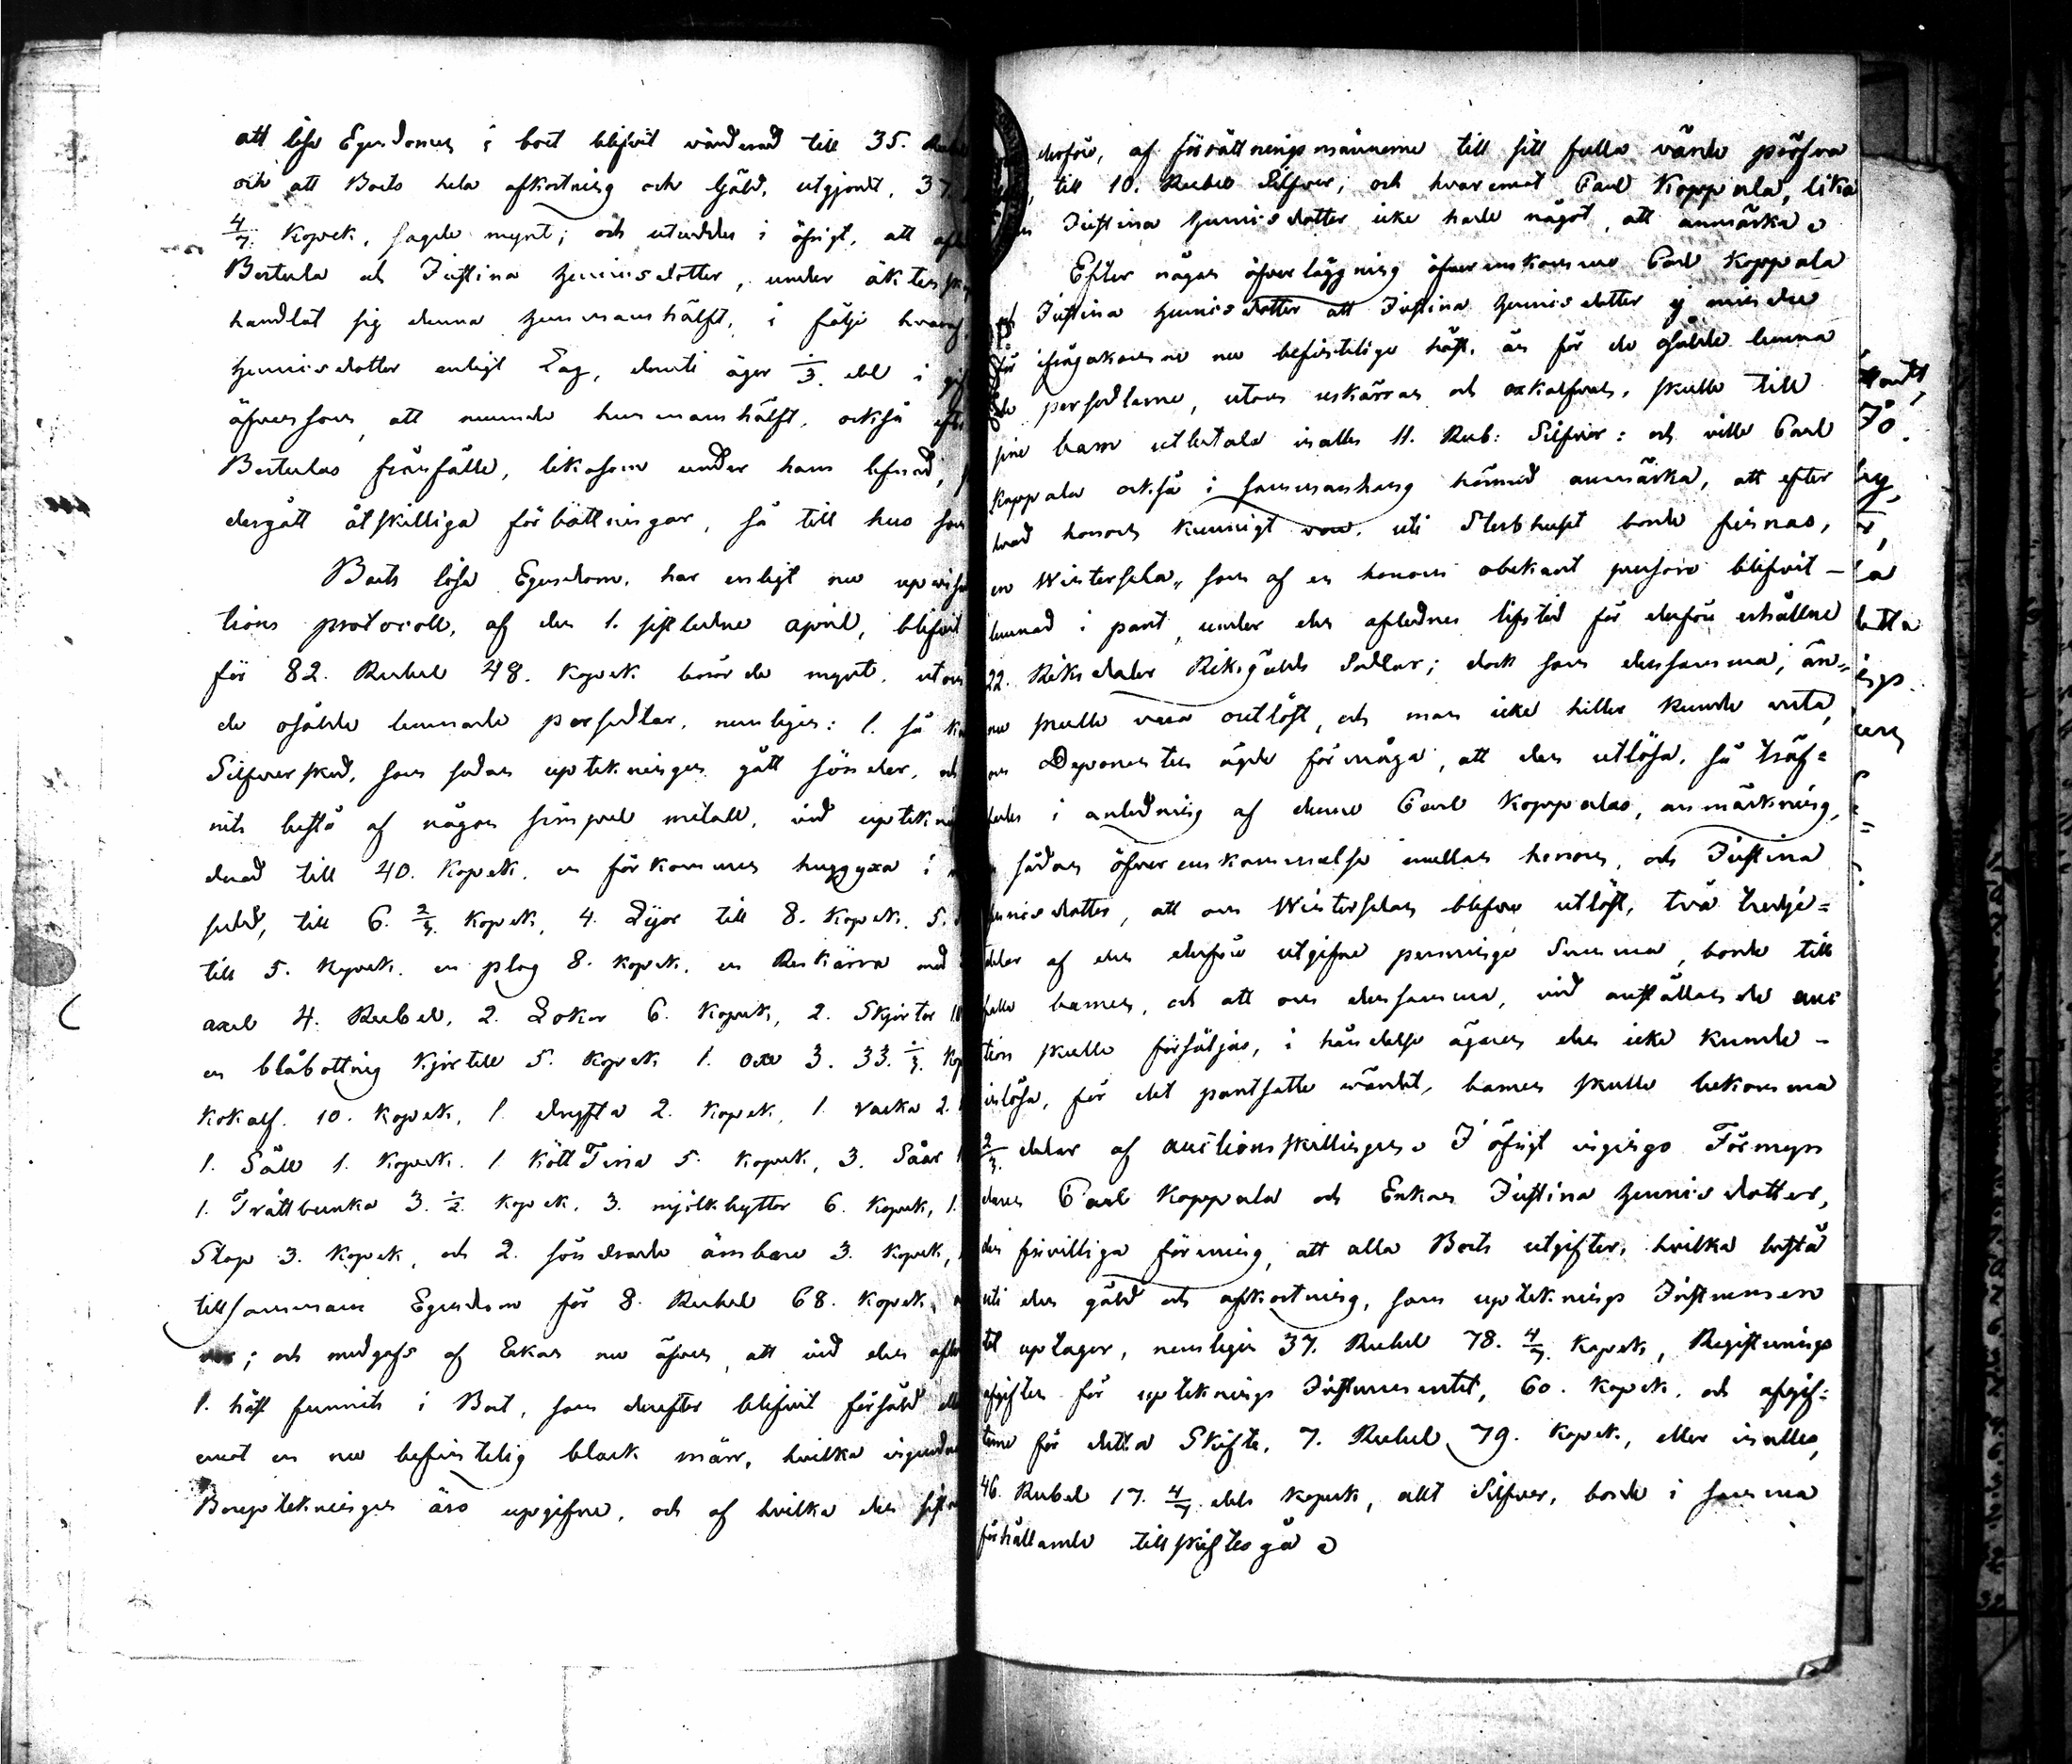 att lösa Egendomen i boet blifvit värderad till 35.
och att Boets hela afkortning och Gäld, utgjordt, 37
4/7. Kopek, sagde mynt; och utreddes i öfrigt, att
Bertula och Justina Hennisdotter, under äktenskap
handlat sig denna hemmans hälft, i följe hvaraf
Hennisdotter enligt Lag, deruti äger 1/3. del i
äfvensom, att nemnde hemmans hälft, också efter
Bertulas frånfälle, likasom under hans lifnad,
dergått åtskilliga förbättningar, så till hus som
Boets lösa Egendom, har enligt nu upvist
tions protocoll, af den 1. sistledne april, blifvit
för 82. Rubel 48. Kopek berörde mynt, utom
de osålde lemnade persedlar, nemligen: 1. så
Silfversked, som sedan uptekningen gått sönder, och
nits bestå af någon simpel metall, vid uptekni
derad till 40. Kopek, en förkommen huggyxa i
sedd, till 6. 2/3. Kopek, 4. Lijor till 8. Kopek, 5.
till 5. Kopek. en plog 8. Kopek, en Reskärra med
axel 4. Rubel, 2. Lokor 6. Kopek, 2. Skjortor 10
en blåbottnig Kjortell 5. Kopek 1. oxe 3. 33. 1/3. Kop
Kokalf. 10. Kopek, 1. dryfta 2. Kopek, 1. Vacka 2.
1. Såll 1. Kopek. 1. Kött Tina 5. Kopek, 3. Såar
1. Tråttbunka 3. 1/2. Kopek, 3. mjölkbyttor 6. Kopek, 1.
Stop 3. Kopek, och 2. söndrade ämbare 3. Kopek,
tillsammans Egendom för 8. Rubel 68. Kopek,
; och medgafs af Enkan nu äfven, att vid den
1. häst funnits i Boet, som derefter blifvit försåld
emot en nu befintelig black märr, hvilka
Bouptekningen äro upgifne, och af hvilka den
derföre, af förrättningsmännerne till sitt fulla värde pröfva
till 10. Rubel Silfver, och hvaremot Carl Koppala, lika
Justina Hennisdotter icke hade något, att anmärka.
Efter någon öfverläggning öfverenskommo Carl Koppala
och Justina Hennisdotter att Justina Hennisdotter ej mindre
för ifrågakomne nu befintelige häst, än för de osålde lemna
de persedlarne, utom reskärran och oxkalfven, skulle till
sine barn utbetala inalles 11. Rub: Silfver: och ville Carl
Koppala också i sammanhang härmed anmärka, att efter
hvad honom kunnigt vore, uti Sterbhuset borde finnas,
en Wintersela, som af en honom obekant person blifvit
lemnad i pant, under den aflednes lifstid för derföre erhållne
22. Riksdaler Riksgälds Sedlar; dock som densamma, än-
nu skulle vara outlöst, och man icke heller kunde veta,
om Deponenten ägde förmåga, att den utlösa, så träf-
fades i anledning af denne Carl Koppalas, anmärkning,
sådan öfverenskommelse mellan honom, och Justina
Hennisdotter, att om Winterselan blefve utlöst, två tredje-
delar af den derföre utgifne pennings Summa, borde till
falla barnen, och att om densamma, vid anställande auc
tion skulle försäljas, i händelse ägaren den icke kunde
inlösa, för det pantsatte värdet, barnen skulle bekomma
2/3. delar af auctionsskillingen. I öfrigt ingingo Förmyn
daren Carl Koppala och Enkan Justina Hennisdotter,
den frivilliga förening, att alla Boets utgifter, hvilka bestå
uti den gäld och afkortning, som uptknings Instrumen
tet uptager, nemligen 37. Rubel 78. 4/7. Kopek, Registrerings
afgiften för uptknings Instrumentet, 60. Kopek, och afgif-
terne för detta Skifte, 7. Rubel 79. Kopek, eller inalles,
46. Rubel 17. 4/7. dels Kopek, allt Silfver, borde i samma
förhållande till skiftes gå.